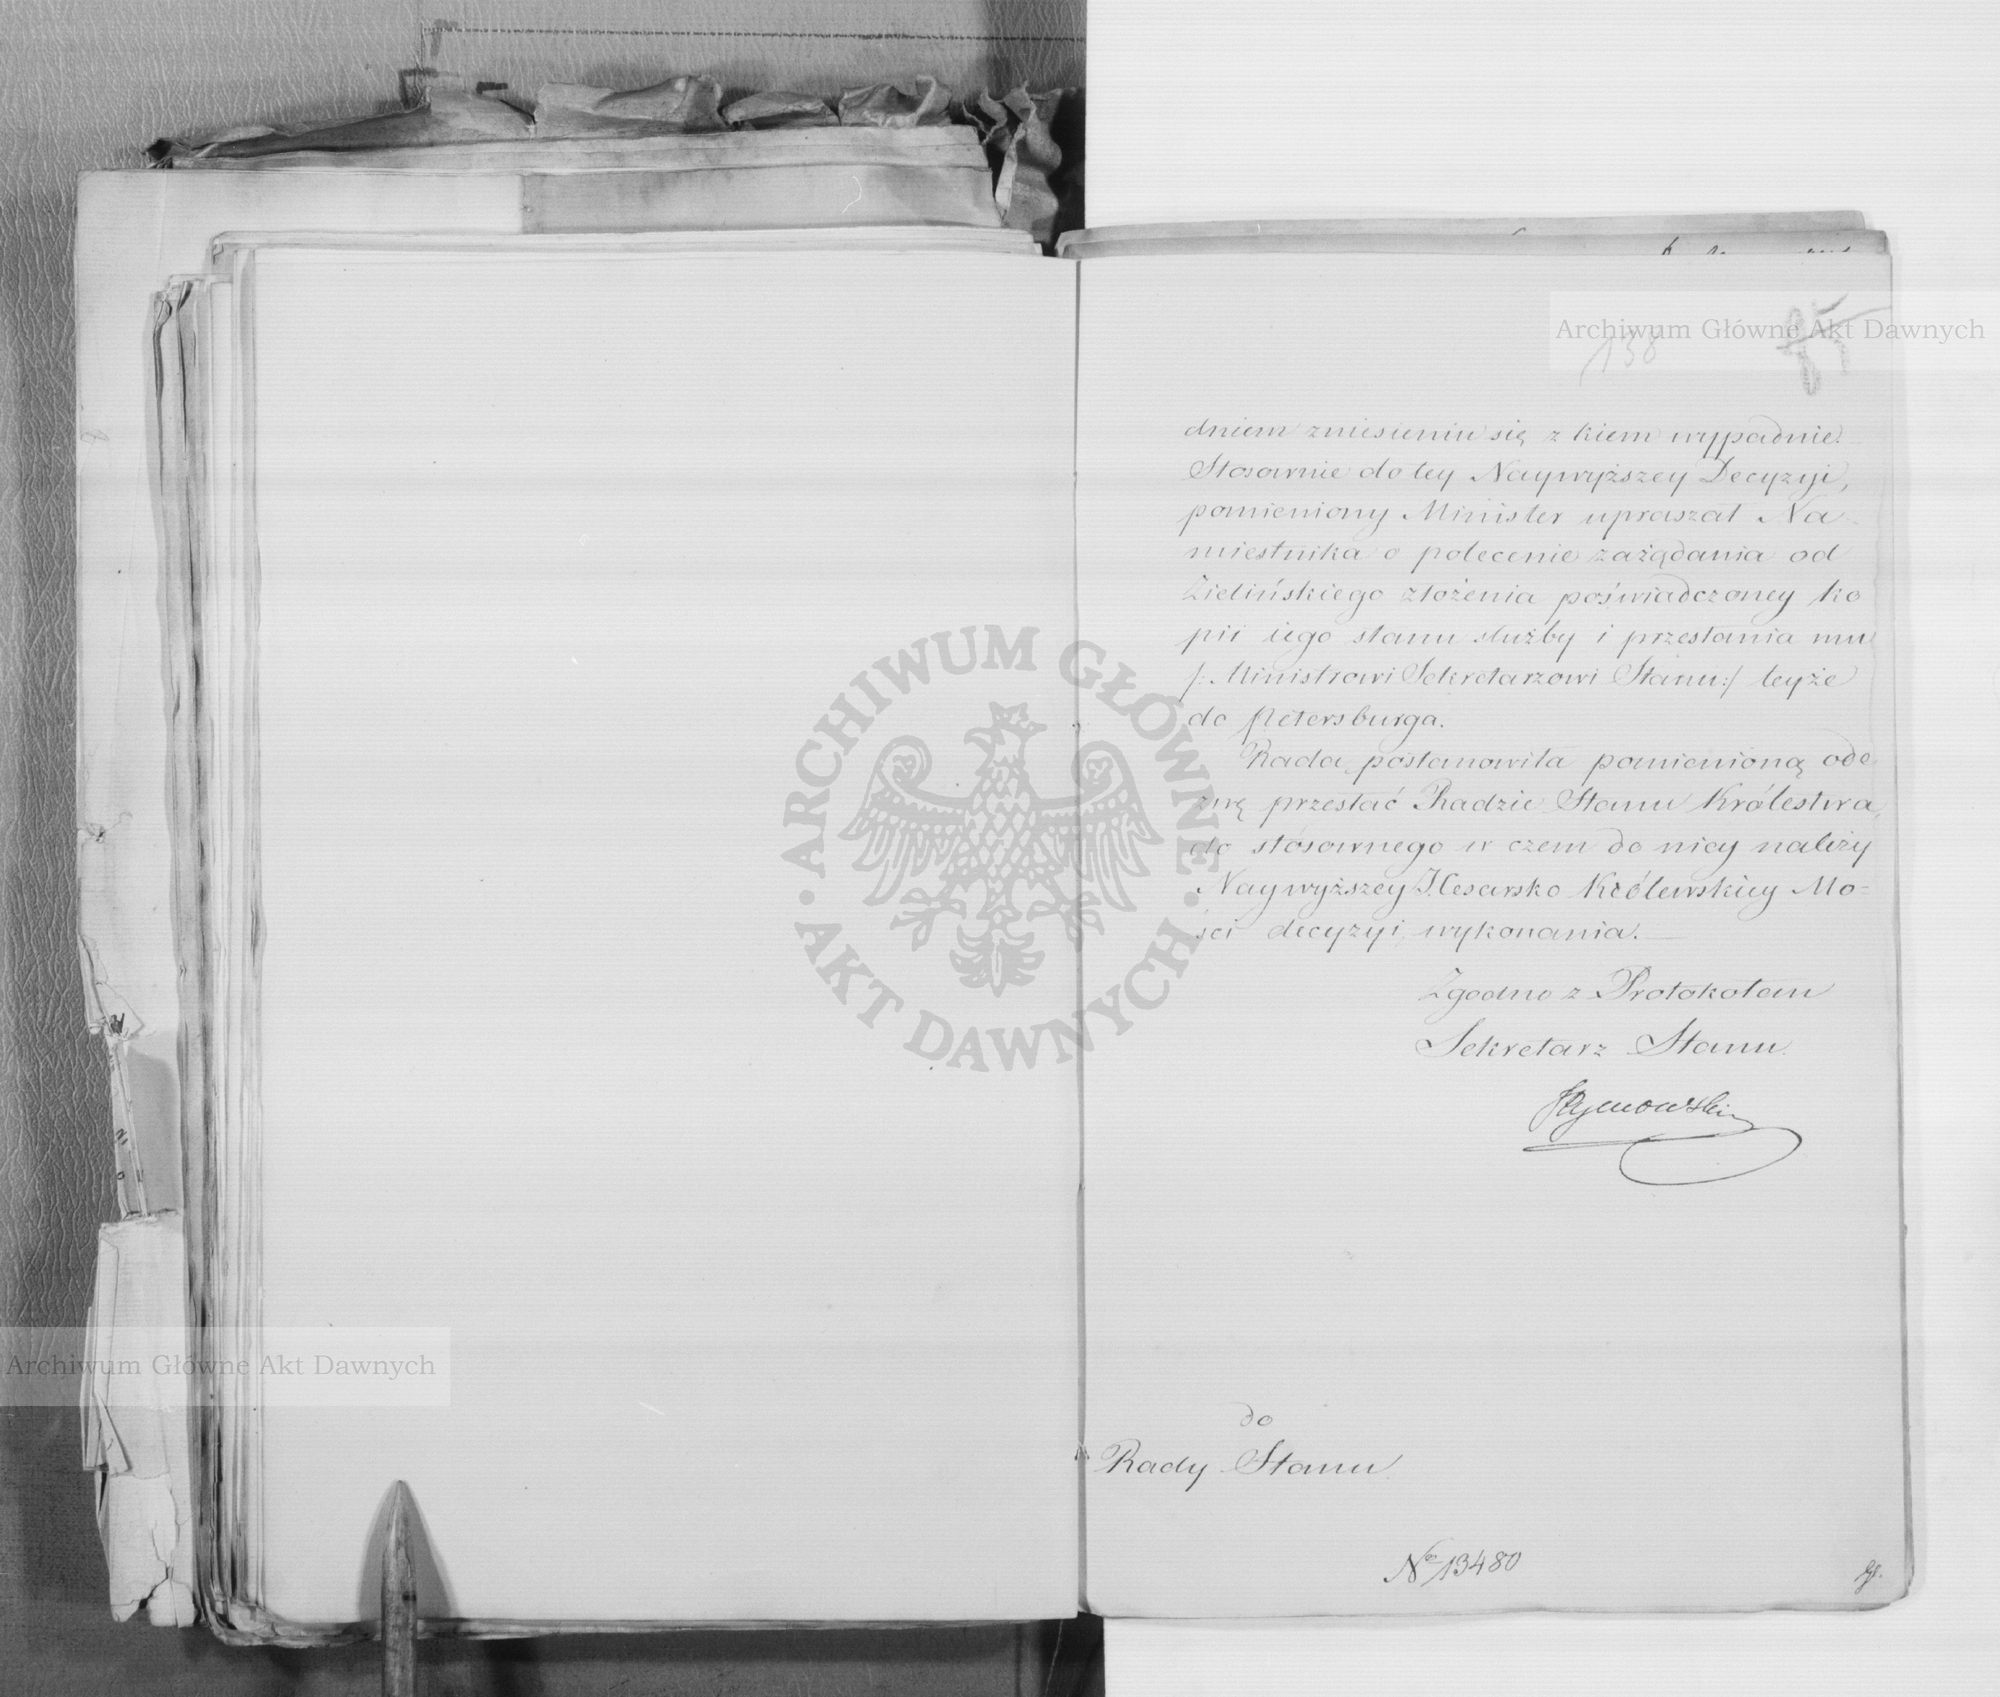 Archiwum Główne Akt Dawnych
138
dniem zniesieniu się z kiem wypadnie.
Stosownie do tey Naywyższey Decyzyi,
pomieniony Minister upraszał Na-
miestnika o polecenie zażądania od
Zielińskiego złożenia poświadczoney ko
pii iego stanu służby i przesłania mu
/: Ministrowi Sekretarzowi Stanu :/ teyże
do Petersburga.
Rada postanowiła pomienioną ode
zwę przesłać Radzie Stanu Królestwa,
do stósownego w czem do niey należy
Naywyższey J. Cesarsko Królewskiey Mo=
ści decyzyi, wykonania.
Zgodno z Protokołem
Sekretarz Stanu
do
Rady Stanu
No 13480
ARCHIWUM GŁÓWNE AKT DAWNYCH
Archiwum Główne Akt Dawnych